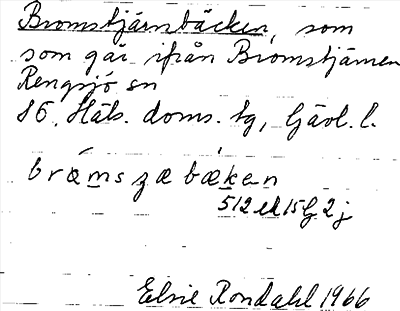 Bromstjärnbäcken, som
som går ifrån Bromstjärnen
Rengsjö sn
S6. Häls. doms. tg, Gävl. l.
bræmszæbæken
512 ek 15 G 2 j
Elsie Rondahl 1966